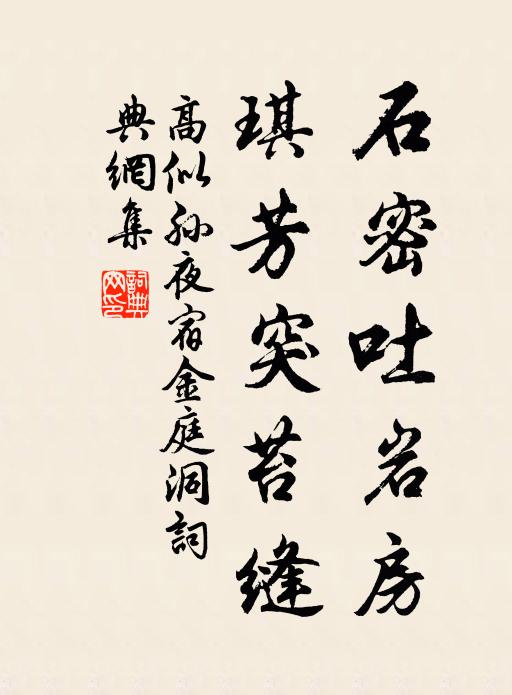 石密吐岩房
琪芳突苔缝
高似孙夜宿金庭洞詞
典網集
詞典
网印